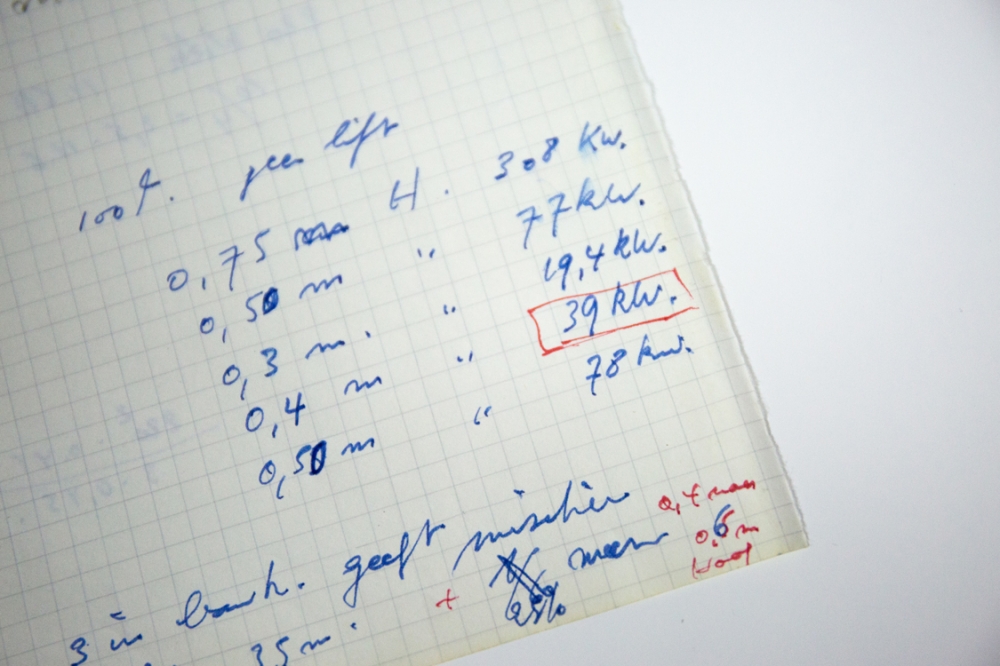 100%. geen lift
0,75 m H. 308 Kw.
0,50 m " 77 kw.
0,3 m. " 19,4 kw.
0,4 m " 39 kw.
0,50 m " 78 kw.
3 in bank. geeft misschien 0,4 naar
+ 25% meer 0,6 m
35 m. Hoog